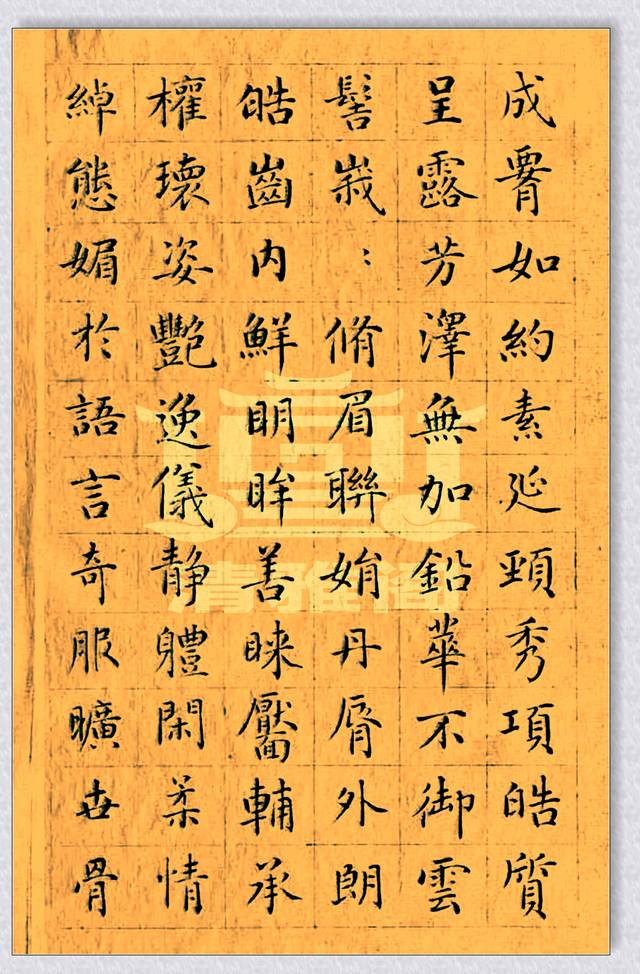 成腰如約素延頸秀項皓質
呈露芳澤無加鉛華不御雲
髻峩：脩眉聯娟丹脣外朗
皓齒内鮮明眸善睞靨輔承
權瓌姿艷逸儀静體閑柔情
綽態媚於語言奇服曠世骨
清雅阁